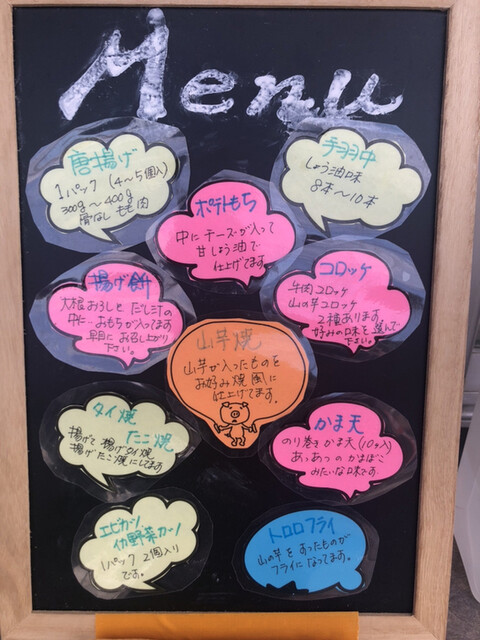 Menu
唐揚げ
1パック (4〜5個入)
300g〜400g
骨なし もも肉
手羽中
しょう油味
8本〜10本
ポテトもち
中にチーズが入って
甘しょう油で
仕上げてます。
揚げ餅
大根おろしと だし汁の
中に…おもちが入ってます
早目にお召し上がり
下さい。
コロッケ
牛肉コロッケ
山の芋コロッケ
2種あります。
好みの味を選んで
下さい。
山芋焼
山芋が入ったものを
お好み焼風に
仕上げてます。
タイ焼
たこ焼
揚げて 揚げタイ焼
揚げたこ焼にしてます
かま天
のり巻きかま天(10ヶ入)
あっあっの かまぼこ
みたいな味です
エビカツ
イカ野菜カツ
1パック 2個入り
です。
トロロフライ
山の芋を すったものが
フライになってます。